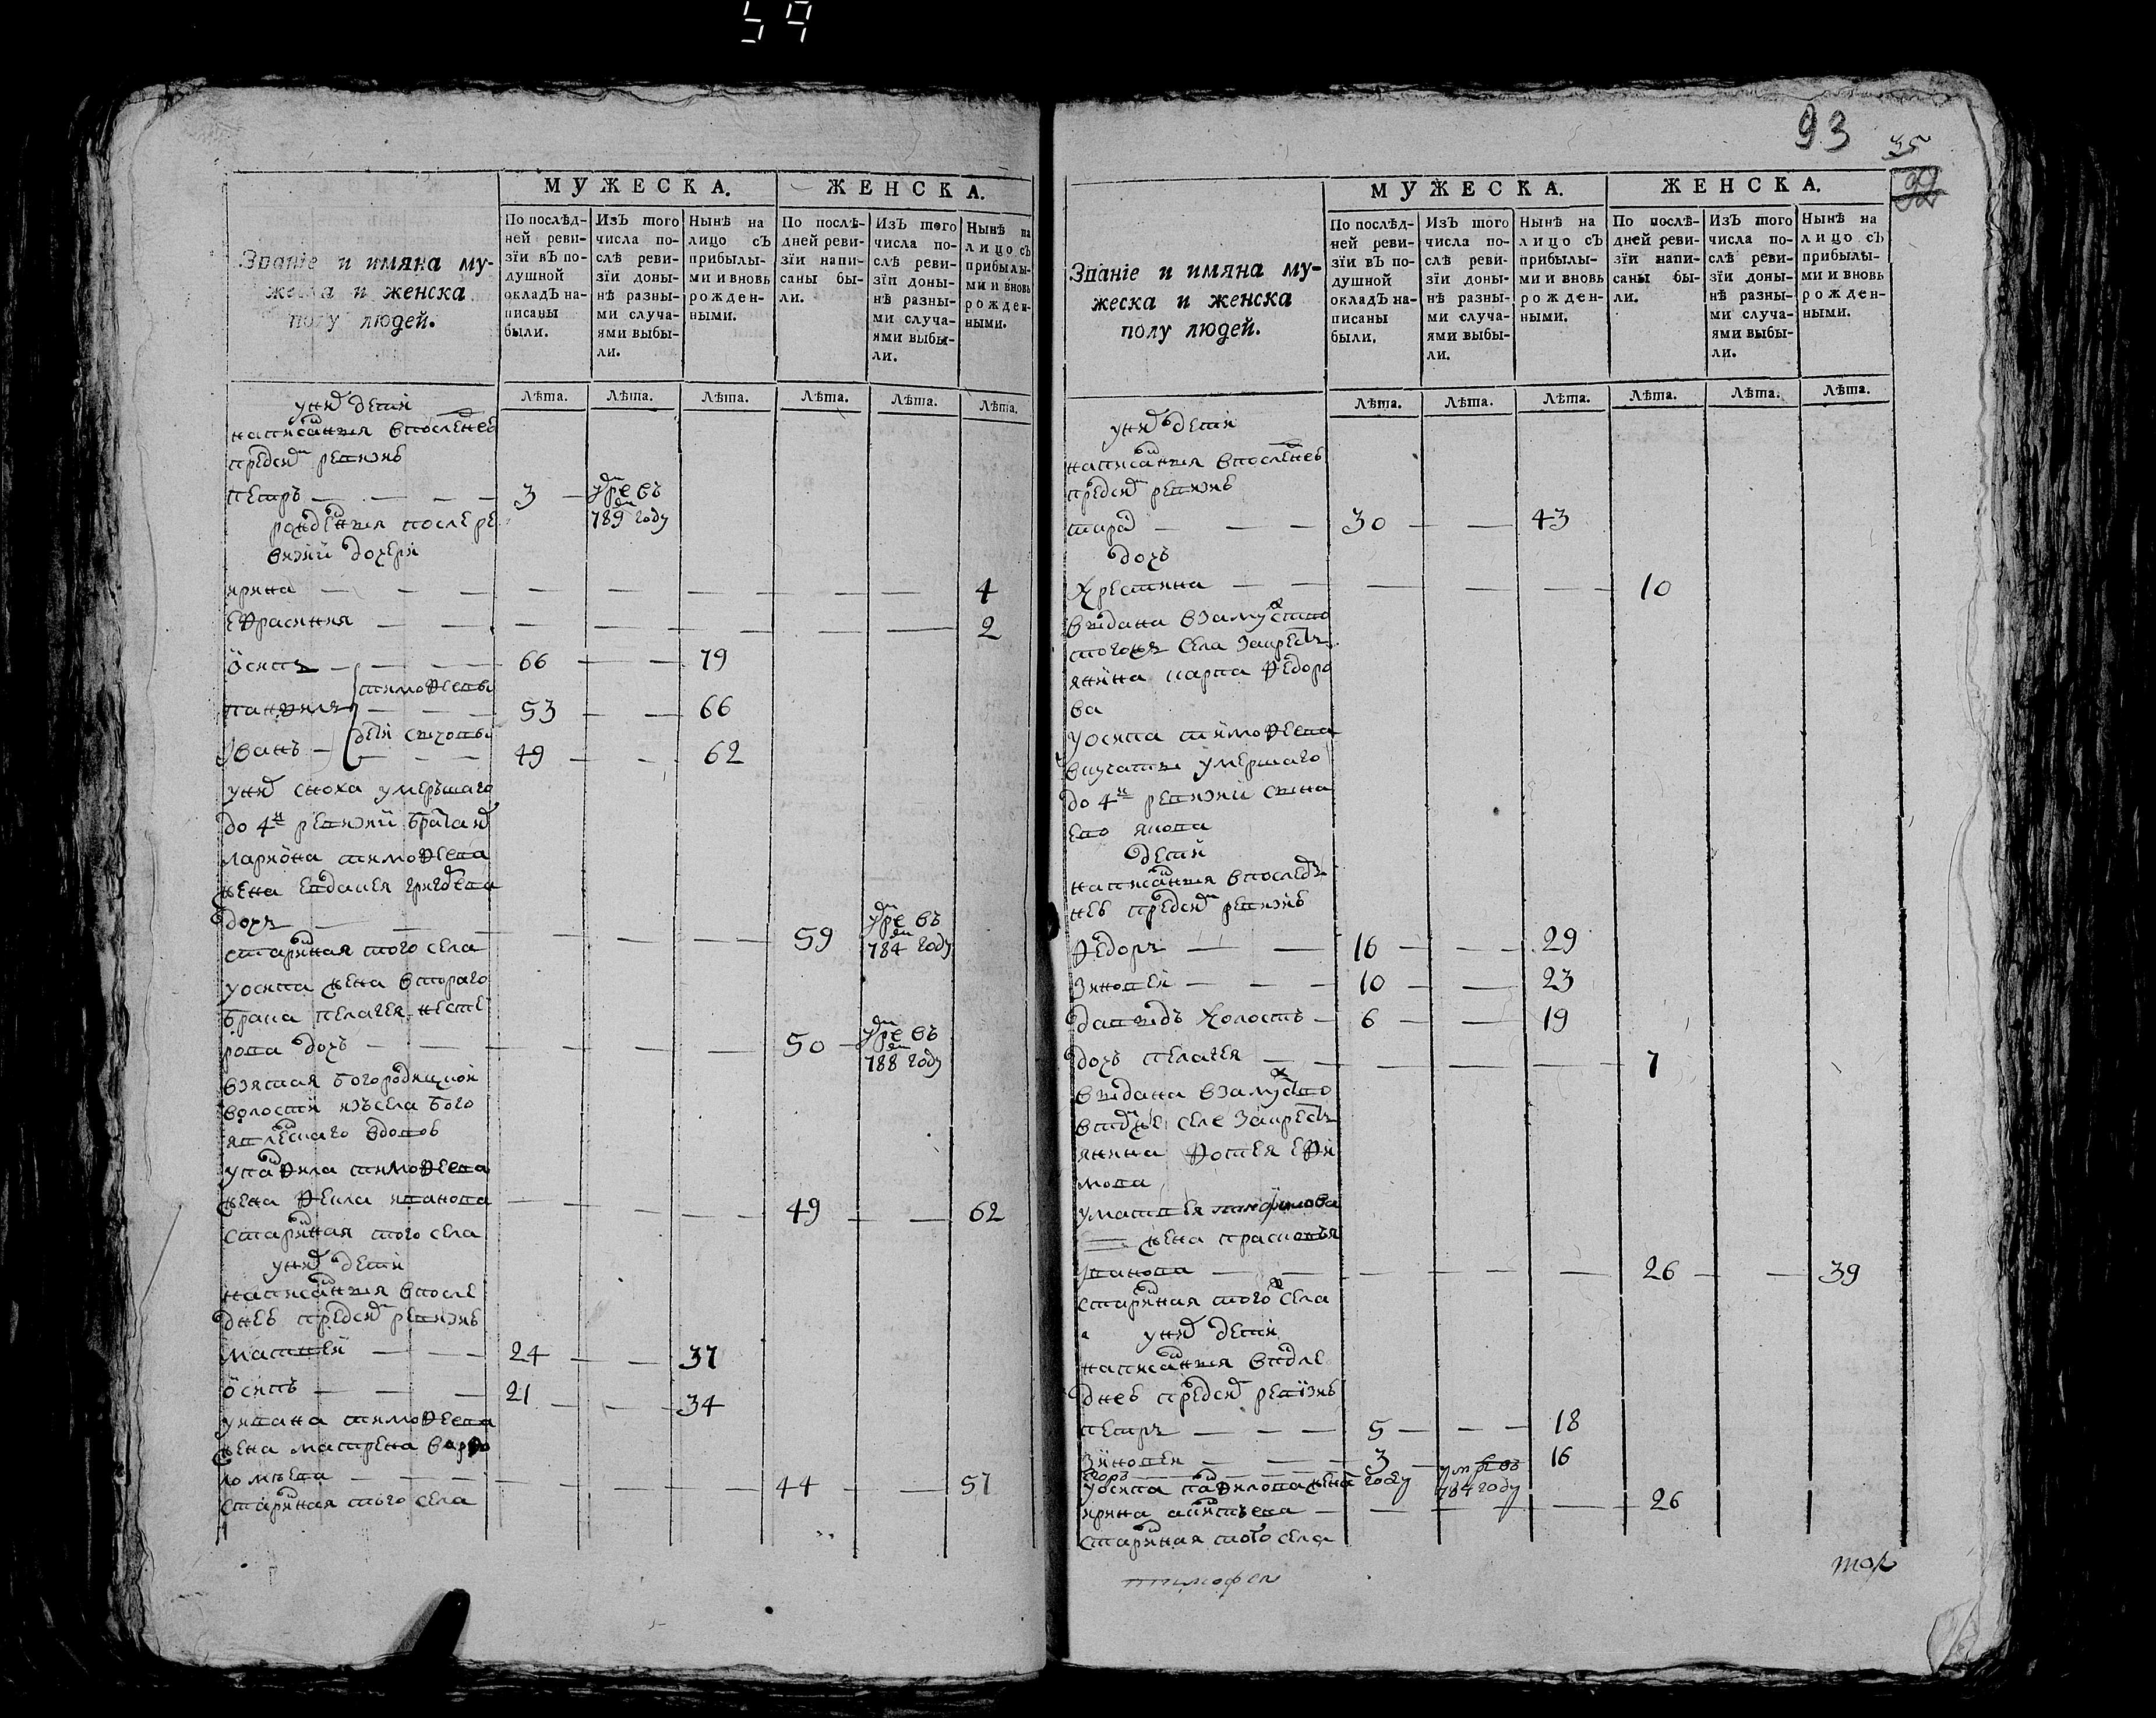 59
МУЖЕСКА. ЖЕНСКА.
Званіе и имяна му-
жеска и женска
полу людей.
По послѣд-
ней реви-
зїи вЪ по-
душной
окладЪ на-
писаны
были.
ИзЪ того
числа по-
слѣ реви-
зїи доны-
нѣ разны-
ми случа-
ями выбы-
ли.
Нынѣ на
лицо сЪ
прибылы-
ми и вновь
рожден-
ными.
По послѣ-
дней реви-
зїи напи-
саны бы-
ли.
ИзЪ того
числа по-
слѣ реви-
зїи доны-
нѣ разны-
ми случа-
ями выбы-
ли.
Нынѣ на
лицо сЪ
прибылы-
ми и вновь
рожден-
ными.
Лѣта. Лѣта. Лѣта. Лѣта. Лѣта. Лѣта.
у них дети
написанныя впоследнеѣ
пред сим ревизиѣ
петръ 3 умре въ
789 году
рожденныя после ре
визии дочери
ирина 4
ефрасиния 2
осипъ 66 79
тимофеевы
панфилъ 53 66
дети сыховы
Иванъ 49 62
у них сноха умершаго
до 4й ревизии брата их
лариона тимофеева
жена евдакея
дочь 59 умре въ
784 году
старинная того села
у осипа жена втораго
брака пелагея несте
рова дочь 50 умре въ
788 году
взятая богородицкой
волости изъ села бого
явленскаго вдовоѣ
у панфила тимофеева
жена фекла иванова 49 62
старинная того села
у них дети
написанныя в после
днеѣ пред сим ревизиѣ
матвей 24 37
осипъ 21 34
у ивана тимофеева
жена матрена варфо
ломеева 44 57
старинная того села
93
35
МУЖЕСКА. ЖЕНСКА.
Званіе и имяна му-
жеска и женска
полу людей.
По послѣд-
ней реви-
зїи вЪ по-
душной
окладЪ на-
писаны
были.
ИзЪ того
числа по-
слѣ реви-
зїи доны-
нѣ разны-
ми случа-
ями выбы-
ли.
Нынѣ на
лицо сЪ
прибылы-
ми и вновь
рожден-
ными.
По послѣ-
дней реви-
зїи напи-
саны бы-
ли.
ИзЪ того
числа по-
слѣ реви-
зїи доны-
нѣ разны-
ми случа-
ями выбы-
ли.
Нынѣ на
лицо сЪ
прибылы-
ми и вновь
рожден-
ными.
Лѣта. Лѣта. Лѣта. Лѣта. Лѣта. Лѣта.
у них дети
написанныя впоследнеѣ
пред сим ревизиѣ
тарас 30 43
дочь
Хрестина 10
выдана взамужство
тогожъ села за крестъ
янина карпа федоро
ва
у осипа тимофеева
внучаты умершаго
до 4й ревизии сына
ево якова
дети
написанныя впоследъ
неѣ пред сим ревизиѣ
федоръ 16 29
зиновей 10 23
давыдъ холостъ 6 19
дочь пелагея 7
выдана взамужство
в том же селе за крестъ
янина фотея ефи
мова
у матвея панфилова
жена прасковья
Иванова 26 39
старинная того ж села
у них дети
написанныя в после
днеѣ пред сим ревизиѣ
петръ 5 18
зиновеи 3 16
егоръ году умре въ
784 году
у осипа панфилова жена
ирина 26
старинная того села
тимофеи